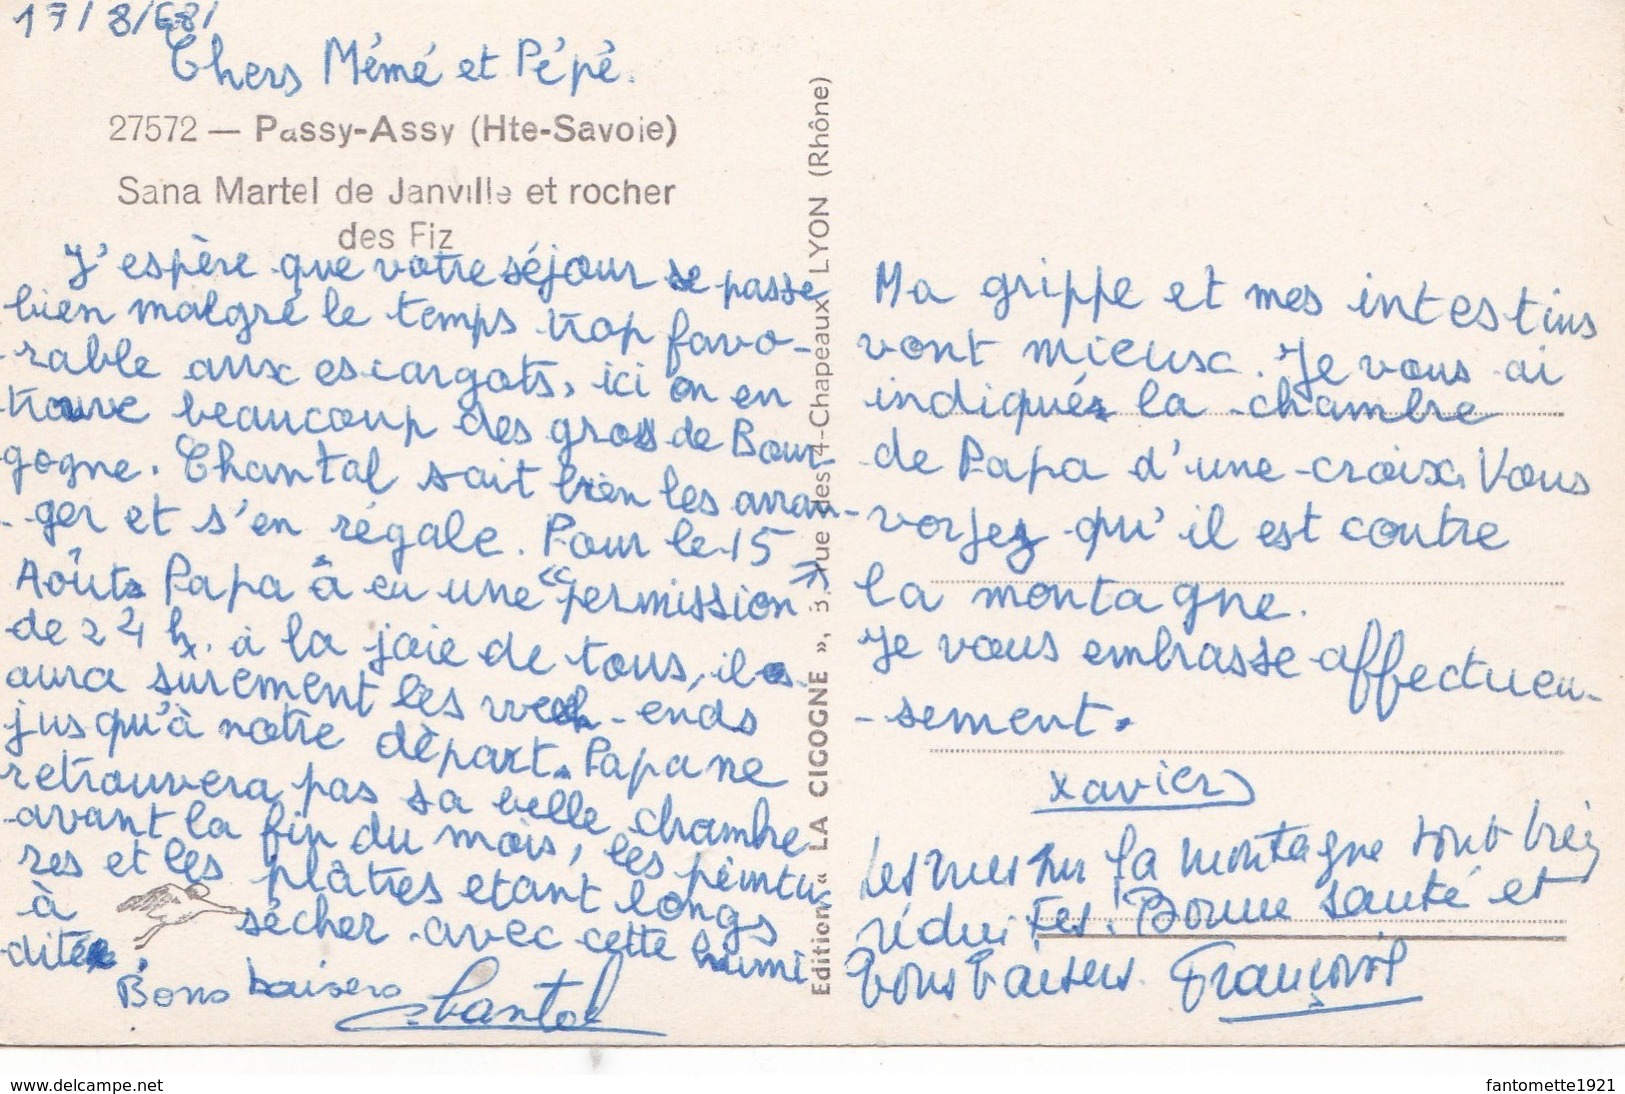 17/8/68/
Chers Mémé et Pépé.
27572 — Passy-Assy (Hte-Savoie)
Sana Martel de Janville et rocher
des Fiz
J'espère que votre séjour se passe
bien malgré le temps trop favo-
-rable aux escargots, ici on en
trouve beaucoup des gros de Bour-
gogne. Chantal sait bien les arran-
-ger et s'en régale. Pour le 15
Août Papa à eu une "permission"
de 24 h. à la joie de tous, il
aura sûrement les week-ends
jusqu'à notre départ. Papa ne
retrouvera pas sa belle chambre
avant la fin du mois, les peintu-
res et les plâtres etant longs
à sécher avec cette humi
dité.
Bons baisers
Chantal
Edition « LA CIGOGNE », 3, rue des 4-Chapeaux LYON (Rhône)
Ma grippe et mes intestins
vont mieux. Je vous ai
indiqué la chambre
de Papa d'une croix. Vous
voyez qu'il est contre
la montagne.
Je vous embrasse affectueu-
-sement.
Xavier
Les vues sur la montagne sont très
réduites. Bonne santé et
bons baisers. François
www.delcampe.net
fantomette1921